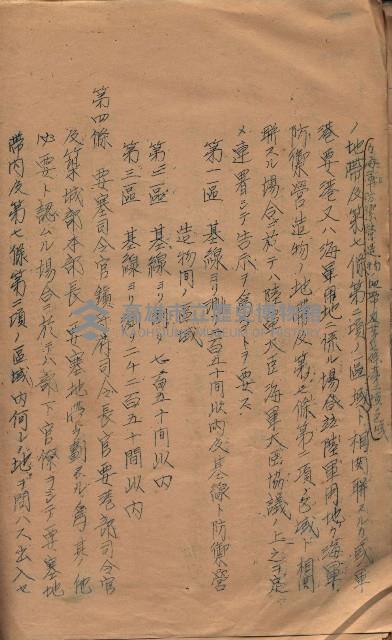 ノ地帶及第七條第二項ノ區域ト相關聯スルカ或ハ軍
港要港又ハ海軍用地ニ亙ル場合並陸軍用地カ海軍
防禦營造物ノ地帶及第七條第二項ノ區域ト相關
聯スル場合ニ於テハ陸軍大臣海軍大臣協議ノ上之ヲ定
メ連署シテ告示ヲ爲スコトヲ要ス
第一區 基線ヨリ二百五十間以內及基線ト防禦營
造物間ノ區域
第二區 基線ヨリ七百五十間以內
第三區 基線ヨリ二千二百五十間以內
第四條 要塞司令官鎮守府司令長官要港部司令官
及築城部本部長ハ要塞地帶ノ劃ヲ爲ス其ノ他
必要ト認ムル場合ニ於テハ部下官僚ヲシテ要塞地
帶內及第七條第二項ノ區域內何レノ地ヲ問ハス出入セ
高雄市立歷史博物館
KAOHSIUNG MUSEUM OF HISTORY